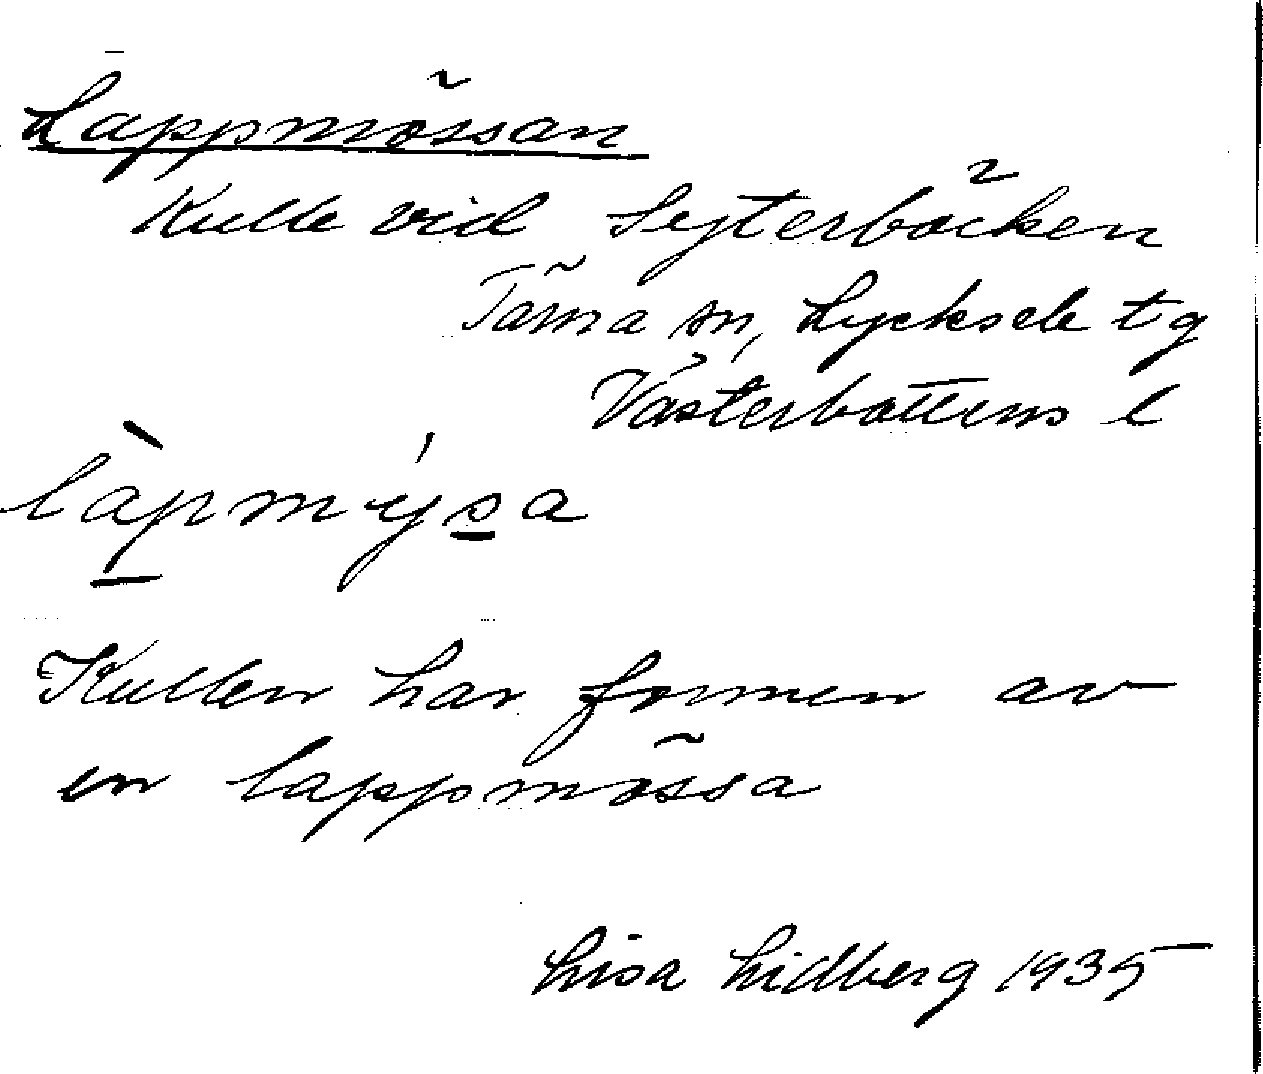 Lappmössan
Kulle vid Sejterbäcken
Tärna sn, Lycksele tg
Västerbottens l
làpmýsa
Kullen har formen av
en lappmössa
Lisa Lidberg 1935